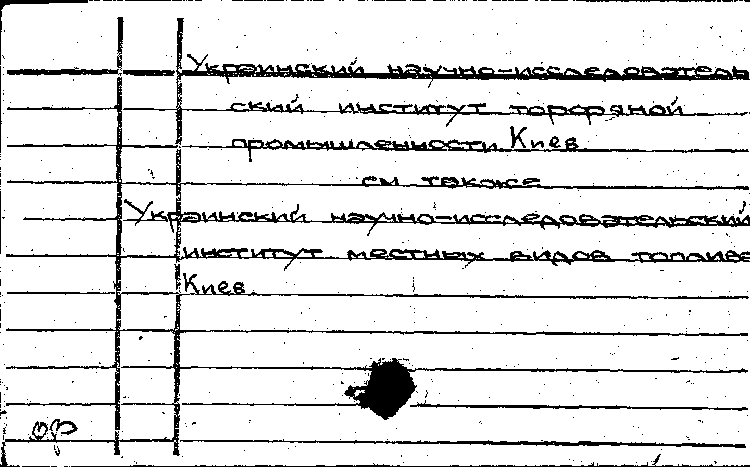 Украинский научно-исследователь
ский институт торфяной
промышленности Киев
см также
Украинский научно-исследовательский
институт местных видов топлива
Киев.
ор